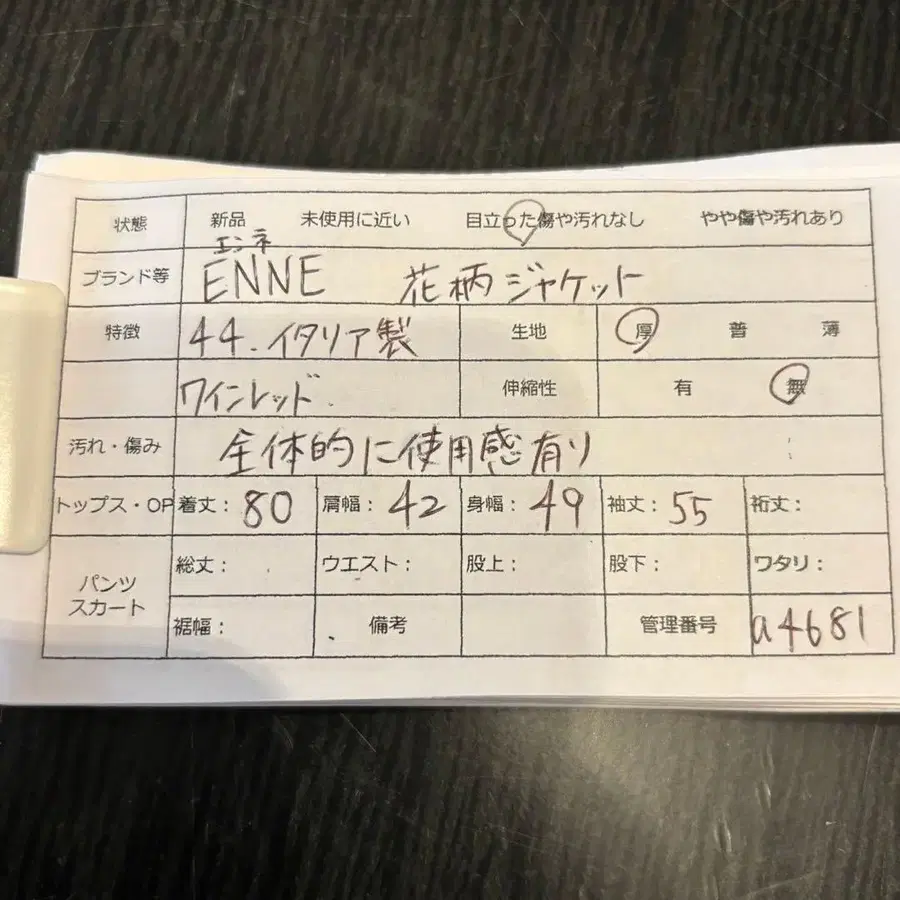 状態 新品 未使用に近い 目立った傷や汚れなし やや傷や汚れあり
エンネ
ブランド等 ENNE 花柄ジャケット
特徴 44. イタリア製 生地 厚 普 薄
ワインレッド. 伸縮性 有 無
汚れ・傷み 全体的に使用感有り
トップス・OP 着丈: 80 肩幅: 42 身幅: 49 袖丈: 55 裄丈:
パンツ スカート 総丈: ウエスト: 股上: 股下: ワタリ:
裾幅: 備考 管理番号 a4681